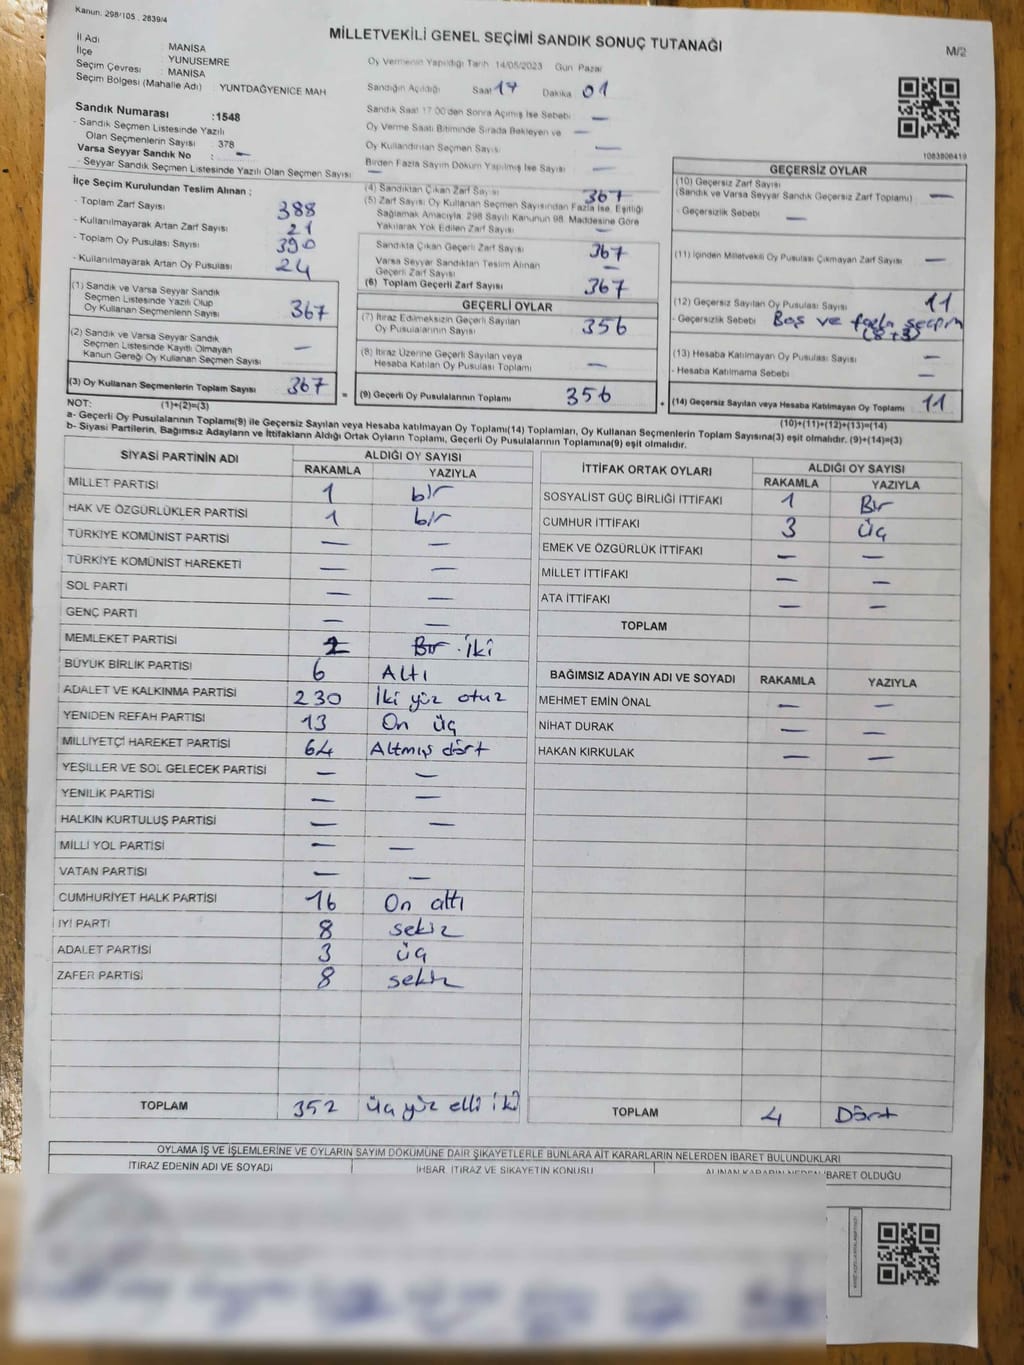 Kanun: 298/105, 2839/4
MİLLETVEKİLİ GENEL SEÇİMİ SANDIK SONUÇ TUTANAĞI
M/2
İl Adı : MANİSA
İlçe : YUNUSEMRE
Seçim Çevresi : MANİSA
Seçim Bölgesi (Mahalle Adı) : YUNTDAĞYENİCE MAH
Sandık Numarası : 1548
- Sandık Seçmen Listesinde Yazılı
Olan Seçmenlerin Sayısı : 378
Varsa Seyyar Sandık No : —
- Seyyar Sandık Seçmen Listesinde Yazılı Olan Seçmen Sayısı : —
Oy Vermenin Yapıldığı Tarih 14/05/2023 Gün Pazar
Sandığın Açıldığı Saat 17 Dakika 01
Sandık Saat 17:00'den Sonra Açılmış İse Sebebi —
Oy Verme Saati Bitiminde Sırada Bekleyen ve —
Oy Kullandırılan Seçmen Sayısı —
Birden Fazla Sayım Döküm Yapılmış İse Sayısı —
1083806419
İlçe Seçim Kurulundan Teslim Alınan :
- Toplam Zarf Sayısı 388
- Kullanılmayarak Artan Zarf Sayısı 21
- Toplam Oy Pusulası Sayısı 390
- Kullanılmayarak Artan Oy Pusulası 24
(1) Sandık ve Varsa Seyyar Sandık
Seçmen Listesinde Yazılı Olup
Oy Kullanan Seçmenlerin Sayısı 367
(2) Sandık ve Varsa Seyyar Sandık
Seçmen Listesinde Kayıtlı Olmayan
Kanun Gereği Oy Kullanan Seçmen Sayısı —
(3) Oy Kullanan Seçmenlerin Toplam Sayısı 367
(4) Sandıktan Çıkan Zarf Sayısı 367
(5) Zarf Sayısı Oy Kullanan Seçmen Sayısından Fazla İse, Eşitliği
Sağlamak Amacıyla, 298 Sayılı Kanunun 98. Maddesine Göre
Yakılarak Yok Edilen Zarf Sayısı —
Sandıkta Çıkan Geçerli Zarf Sayısı 367
Varsa Seyyar Sandıktan Teslim Alınan
Geçerli Zarf Sayısı —
(6) Toplam Geçerli Zarf Sayısı 367
GEÇERLİ OYLAR
(7) İtiraz Edilmeksizin Geçerli Sayılan
Oy Pusulalarının Sayısı 356
(8) İtiraz Üzerine Geçerli Sayılan veya
Hesaba Katılan Oy Pusulası Toplamı —
= (9) Geçerli Oy Pusulalarının Toplamı 356
GEÇERSİZ OYLAR
(10) Geçersiz Zarf Sayısı
(Sandık ve Varsa Seyyar Sandık Geçersiz Zarf Toplamı) —
- Geçersizlik Sebebi —
(11) İçinden Milletvekili Oy Pusulası Çıkmayan Zarf Sayısı —
(12) Geçersiz Sayılan Oy Pusulası Sayısı 11
- Geçersizlik Sebebi Boş ve fazla seçim
(8+3)
(13) Hesaba Katılmayan Oy Pusulası Sayısı —
- Hesaba Katılmama Sebebi —
+ (14) Geçersiz Sayılan veya Hesaba Katılmayan Oy Toplamı 11
NOT: (1)+(2)=(3)
(10)+(11)+(12)+(13)=(14)
a- Geçerli Oy Pusulalarının Toplamı(9) ile Geçersiz Sayılan veya Hesaba katılmayan Oy Toplamı(14) Toplamları, Oy Kullanan Seçmenlerin Toplam Sayısına(3) eşit olmalıdır. (9)+(14)=(3)
b- Siyasi Partilerin, Bağımsız Adayların ve İttifakların Aldığı Ortak Oyların Toplamı, Geçerli Oy Pusulalarının Toplamına(9) eşit olmalıdır.
SİYASİ PARTİNİN ADI ALDIĞI OY SAYISI
RAKAMLA YAZIYLA
MİLLET PARTİSİ 1 bir
HAK VE ÖZGÜRLÜKLER PARTİSİ 1 bir
TÜRKİYE KOMÜNİST PARTİSİ — —
TÜRKİYE KOMÜNİST HAREKETİ — —
SOL PARTİ — —
GENÇ PARTİ — —
MEMLEKET PARTİSİ 2 Bir iki
BÜYÜK BİRLİK PARTİSİ 6 Altı
ADALET VE KALKINMA PARTİSİ 230 İki yüz otuz
YENİDEN REFAH PARTİSİ 13 On üç
MİLLİYETÇİ HAREKET PARTİSİ 64 Altmış dört
YEŞİLLER VE SOL GELECEK PARTİSİ — —
YENİLİK PARTİSİ — —
HALKIN KURTULUŞ PARTİSİ — —
MİLLİ YOL PARTİSİ — —
VATAN PARTİSİ — —
CUMHURİYET HALK PARTİSİ 16 On altı
İYİ PARTİ 8 sekiz
ADALET PARTİSİ 3 üç
ZAFER PARTİSİ 8 sekiz
TOPLAM 352 üç yüz elli iki
İTTİFAK ORTAK OYLARI ALDIĞI OY SAYISI
RAKAMLA YAZIYLA
SOSYALİST GÜÇ BİRLİĞİ İTTİFAKI 1 Bir
CUMHUR İTTİFAKI 3 Üç
EMEK VE ÖZGÜRLÜK İTTİFAKI — —
MİLLET İTTİFAKI — —
ATA İTTİFAKI — —
TOPLAM
BAĞIMSIZ ADAYIN ADI VE SOYADI RAKAMLA YAZIYLA
MEHMET EMİN ÖNAL — —
NİHAT DURAK — —
HAKAN KIRKULAK — —
TOPLAM 4 Dört
OYLAMA İŞ VE İŞLEMLERİNE VE OYLARIN SAYIM DÖKÜMÜNE DAİR ŞİKAYETLERLE BUNLARA AİT KARARLARIN NELERDEN İBARET BULUNDUKLARI
İTİRAZ EDENİN ADI VE SOYADI İHBAR, İTİRAZ VE ŞİKAYETİN KONUSU ALINAN KARARIN NEDEN İBARET OLDUĞU